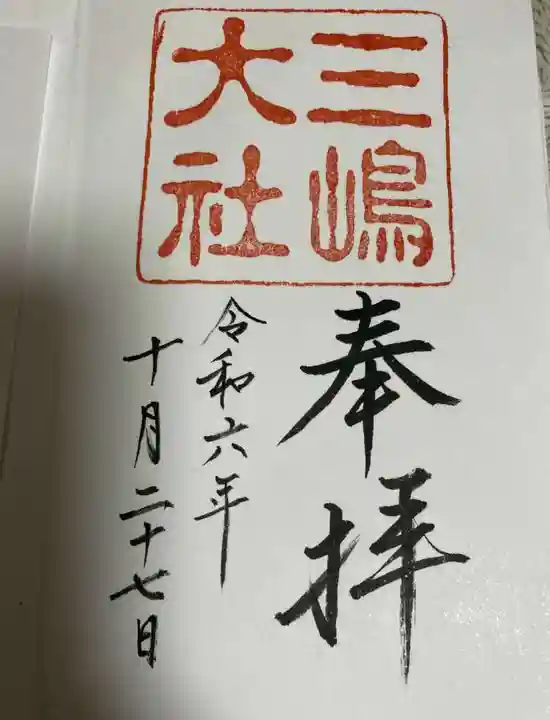 三嶋
大社
奉拝
令和六年
十月二十七日